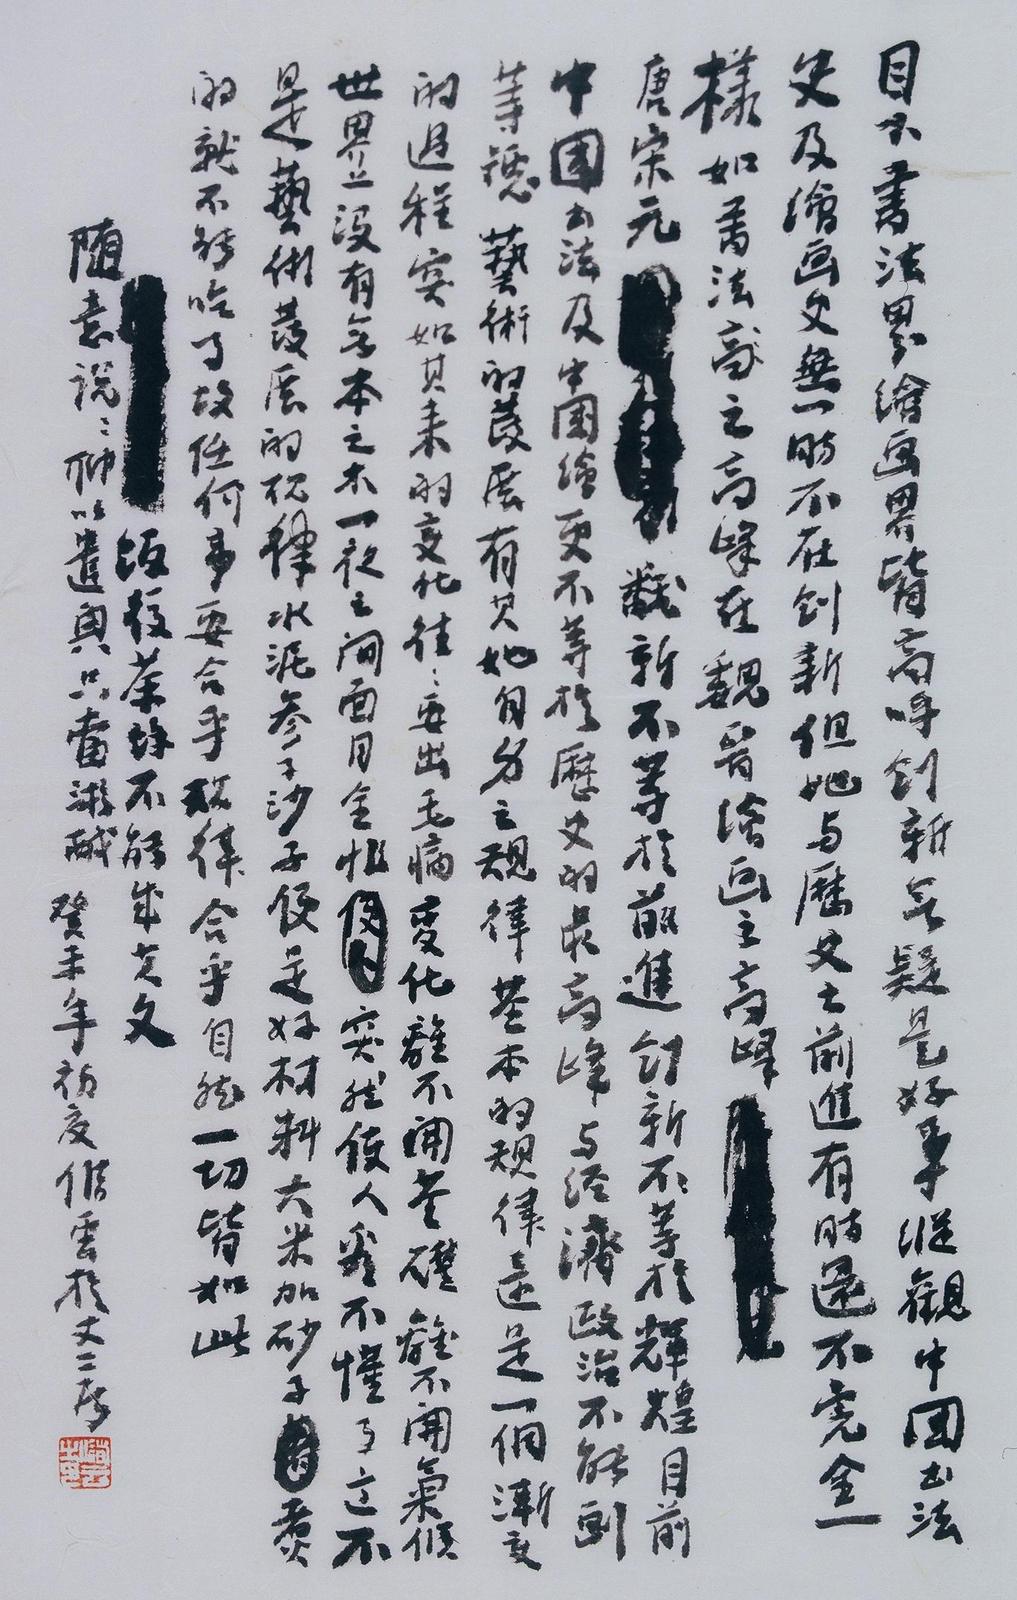 目下書法界繪画界皆高呼創新無疑是好事縱觀中国书法
史及繪画史無一時不在創新但她与歷史之前進有時還不完全一
様如書法之高峰在魏晉繪画之高峰
唐宋元 翻新不等於前進創新不等於輝煌目前
中國书法及中國繪更不等於歷史的最高峰与经濟政治不能劃
等號藝術的發展有其她自身之規律基本的規律還是一個漸变
的過程突如其来的变化往往要出毛病变化離不開基礎離不開氣候
世界上没有無本之木一夜之間面目全非突然使人看不懂了这不
是藝術發展的规律水泥参了沙子便是好材料大米加砂子煮
的就不能吃了故任何事要合乎规律合乎自然一切皆如此
饭後茶餘不能成文
随意説説聊以遣興只當游戲 癸未年初夏 雲於丈二